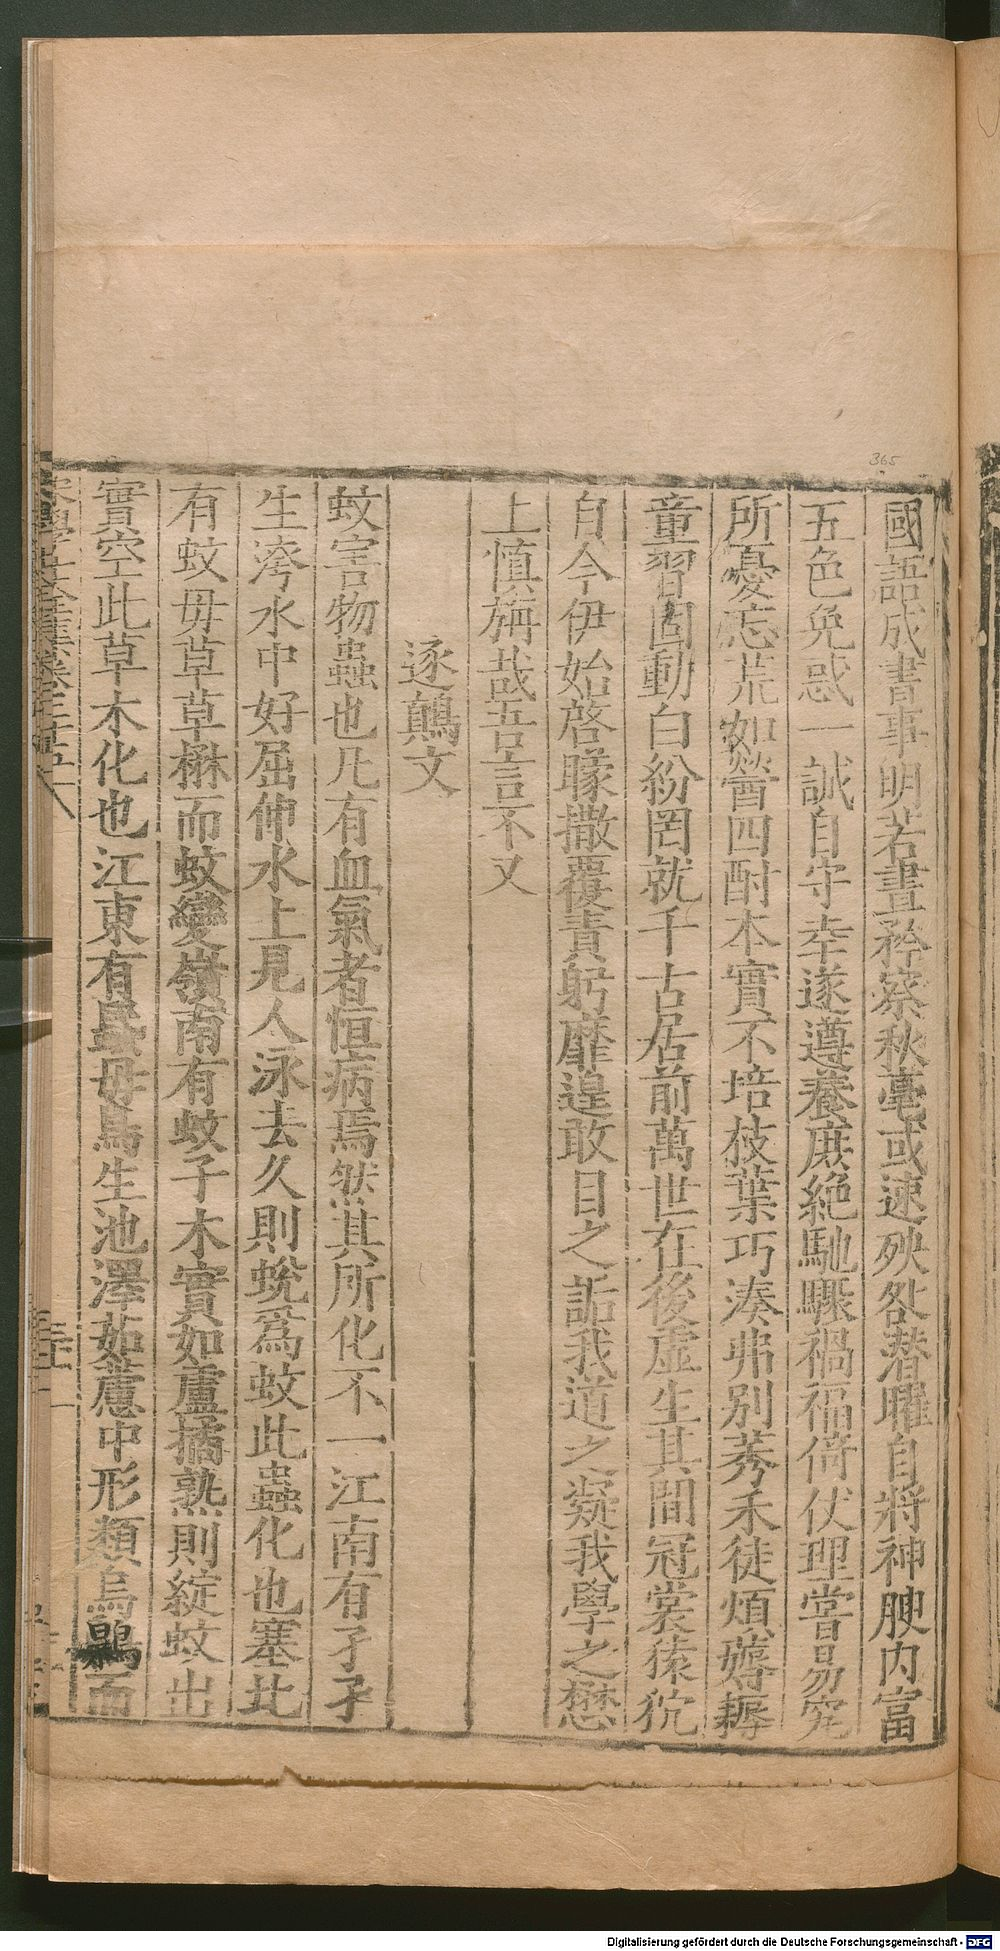 國語成書事明若晝矜察秋毫或速殃咎潜曜自將神腴内富
五色免惑一誠自守幸遂遵養庶絶馳驟禍福倚伏理嘗易究
所憂忘荒如營四酎本實不培枝葉巧湊弗别莠禾徒煩薅耨
童習固動白紛罔就千古居前萬世在後虚生其間冠裳猿狖
自今伊始啓矇撤覆責躬靡遑敢目之詬我道之凝我學之懋
上慎旃哉吾言不又
逐鷏文
蚊害物蟲也凡有血氣者恒病焉然其所化不一江南有孑孑
生濘水中好屈伸水上見人泳去久則蛻爲蚊此蟲化也塞北
有蚊毋草草楙而蚊變嶺南有蚊子木實如盧橘熟則綻蚊出
實空此草木化也江東有蟁毋鳥生池澤茹蘆中形類烏鷏而
365
Digitalisierung gefördert durch die Deutsche Forschungsgemeinschaft - DFG